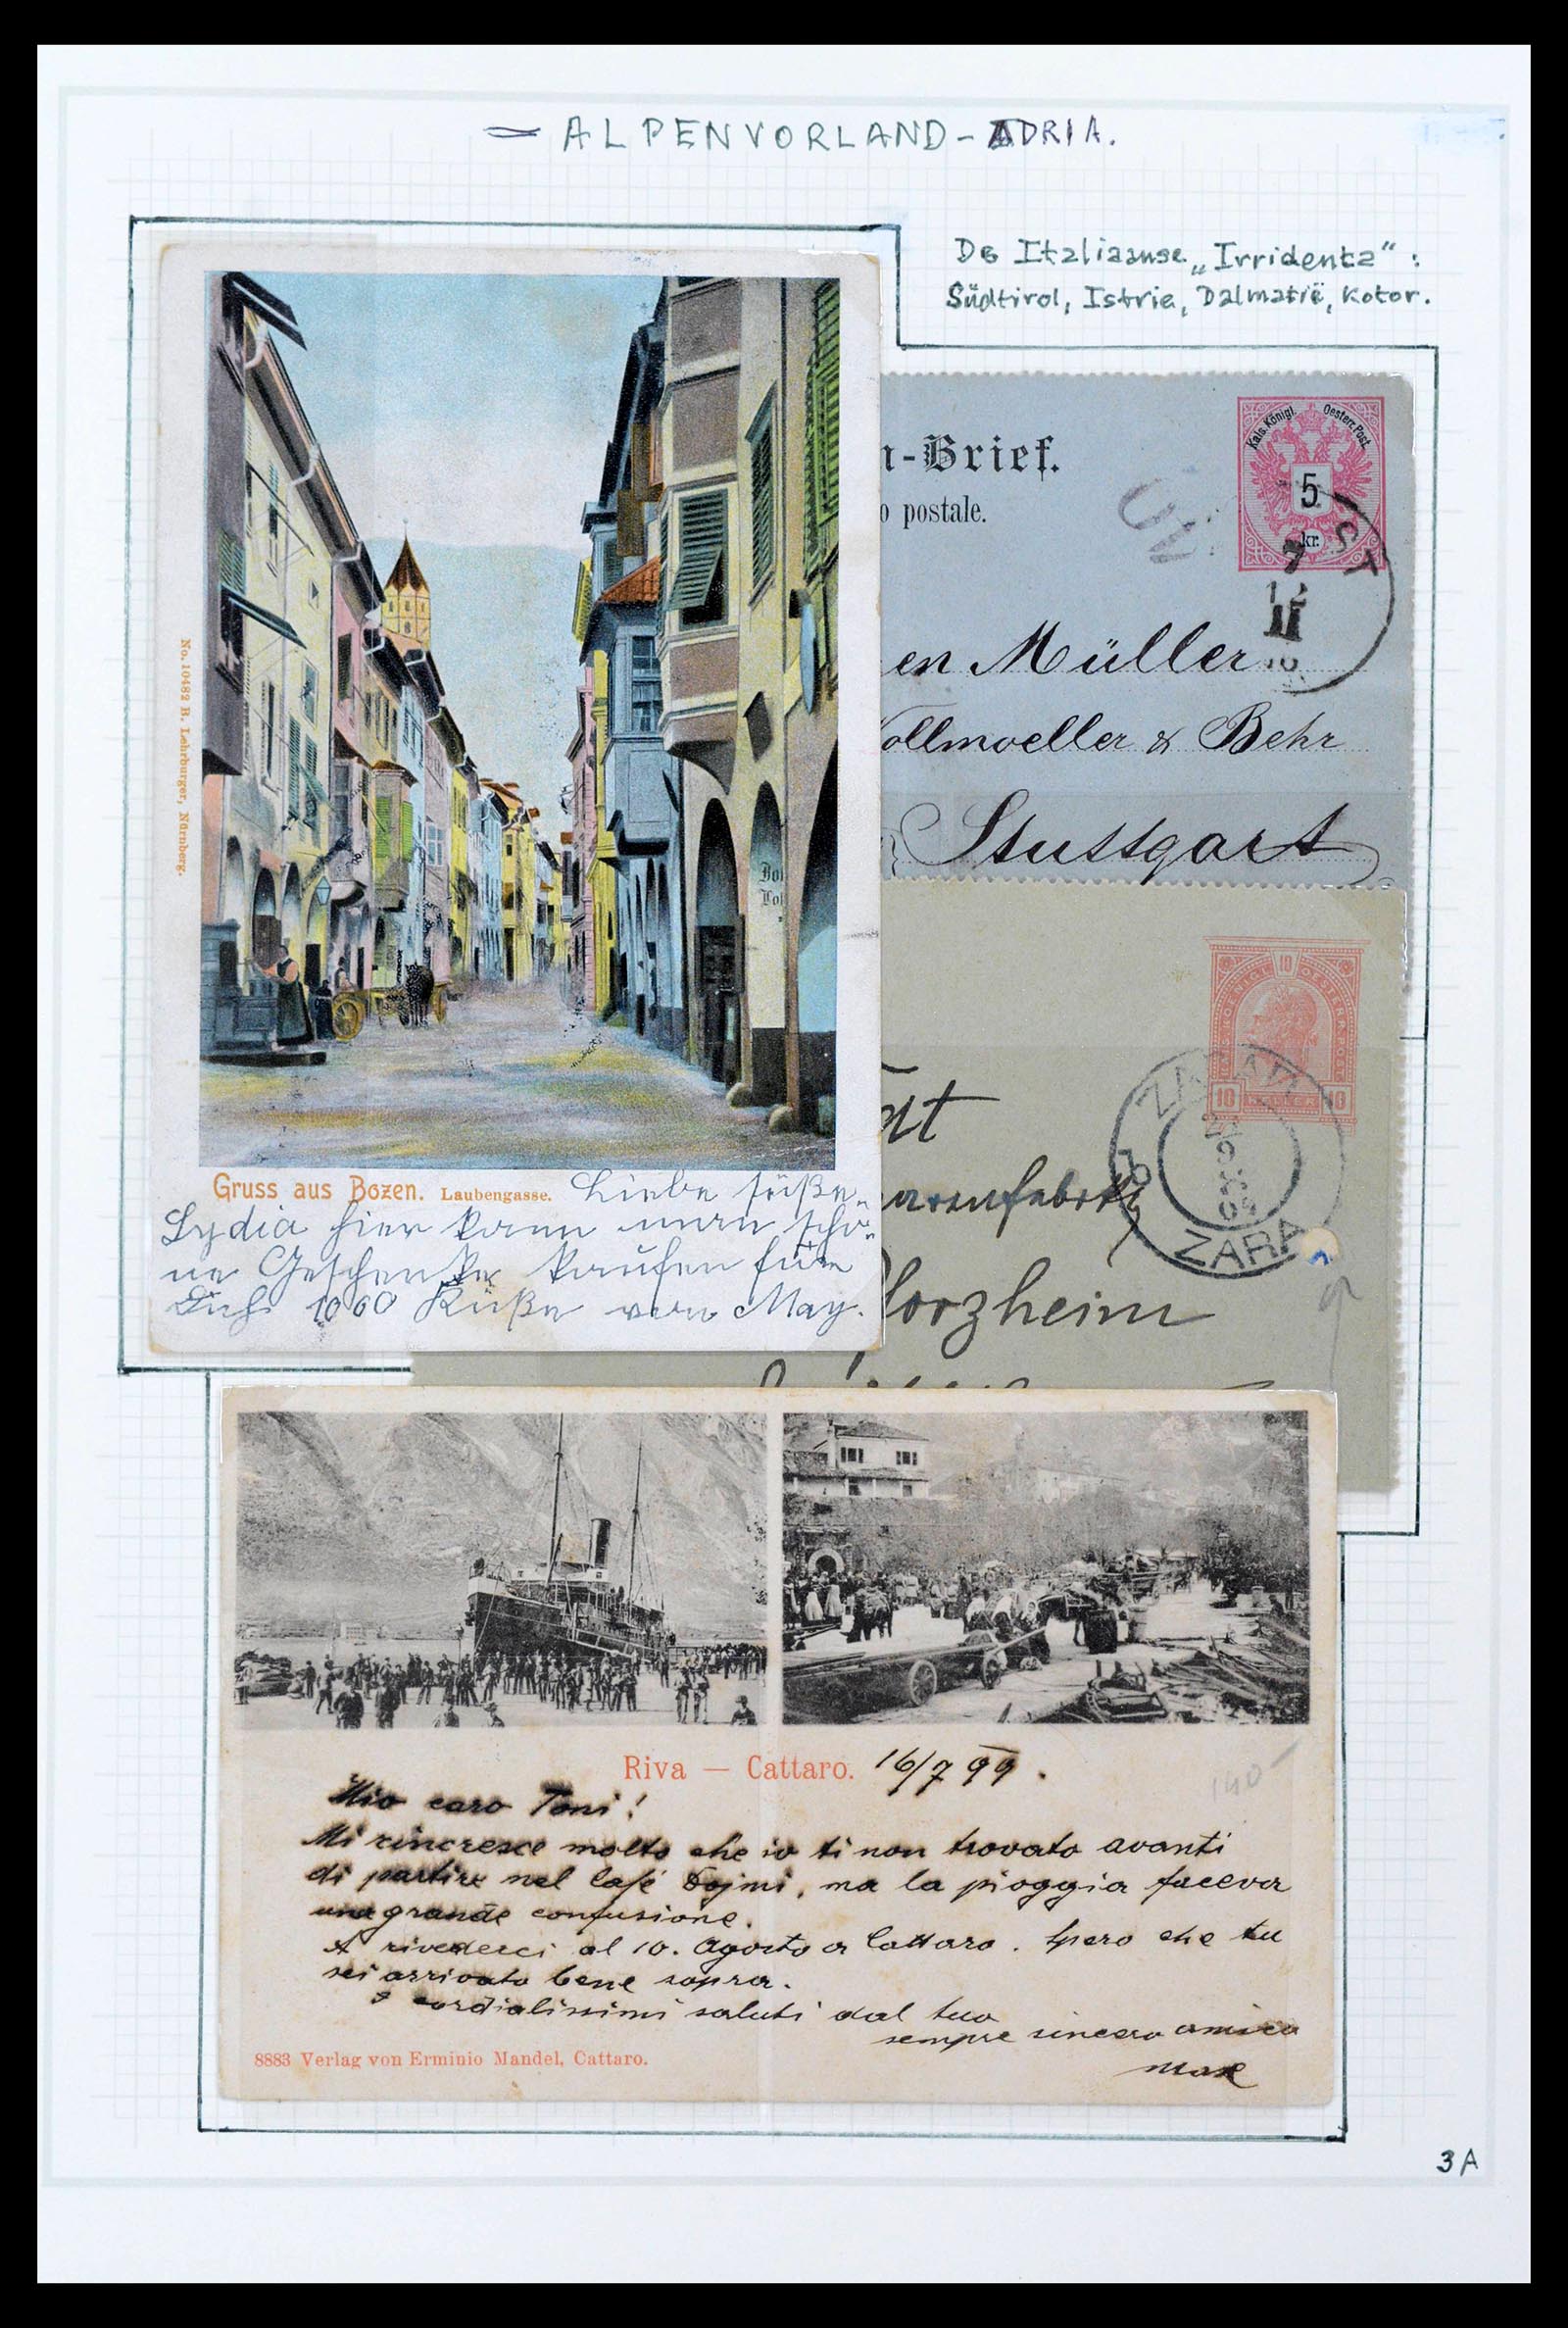 - ALPENVORLAND-ADRIA.
De Italiaanse „Irridenta" :
Südtirol, Istrie, Dalmatië, Kotor.
n-Brief.
o postale.
Kais. Königl. Oesterr. Post.
5
kr.
ST
7
11
en Müller
Vollmoeller & Behr
Stuttgart
No. 10482 B. Lehrburger, Nürnberg.
Gruss aus Bozen. Laubengasse. Liebe süße
Lydia hier kann man schö-
ne Geschenke kaufen für
Dich 1000 Küße von May.
10
10 10
ZARA
arenfabrik
Pforzheim
Riva — Cattaro. 16/7 99.
140-
Mio caro Toni!
Mi rincresce molto che io ti non trovato avanti
di partire nel Café Dojmi, ma la pioggia faceva
una grande confusione.
A rivederci al 10. Agosto a Cattaro. Spero che tu
sei arrivato bene sopra.
I cordialissimi saluti dal tuo
sempre sincero amico
Max
8883 Verlag von Erminio Mandel, Cattaro.
3A